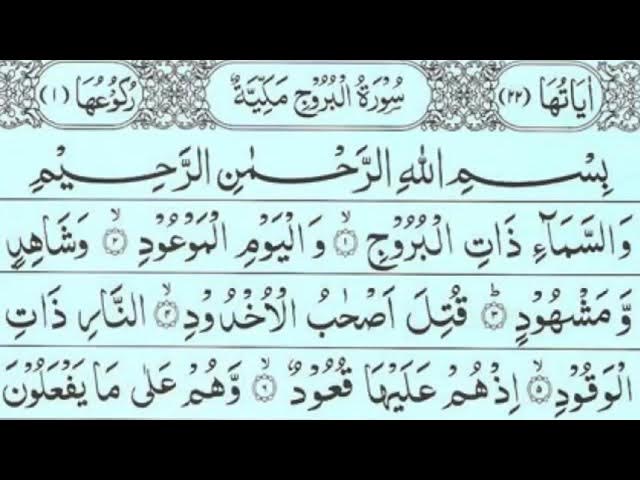 اٰيَاتُهَا (٢٢) سُوْرَةُ الْبُرُوْجِ مَكِّيَّةٌ رُكُوْعُهَا (١)
بِسْمِ اللّٰهِ الرَّحْمٰنِ الرَّحِيْمِ
وَالسَّمَآءِ ذَاتِ الْبُرُوْجِ ۙ﴿١﴾ وَالْيَوْمِ الْمَوْعُوْدِ ۙ﴿٢﴾ وَشَاهِدٍ
وَّمَشْهُوْدٍ ؕ﴿٣﴾ قُتِلَ اَصْحٰبُ الْاُخْدُوْدِ ۙ﴿٤﴾ النَّارِ ذَاتِ
الْوَقُوْدِ ۙ﴿٥﴾ اِذْهُمْ عَلَيْهَا قُعُوْدٌ ۙ﴿٦﴾ وَّهُمْ عَلٰى مَا يَفْعَلُوْنَ